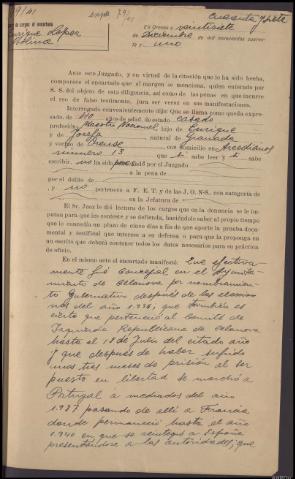 9/41
cargos al encartado
Enrique López
Molina
Cuarenta y siete
En Orense a veintisiete
de Diciembre de mil novecientos cuaren-
ta y uno
Ante este Juzgado, y en virtud de la citación que le ha sido hecha,
compareció el encartado que al margen se menciona, quien enterado por
S. S. del objeto de esta diligencia, así como de las penas en que incurre
el reo de falso testimonio, jura ser veraz en sus manifestaciones.
Interrogado convenientemente dijo: Que se llama como queda expre-
sado, de 40 años de edad, de estado casado
profesión Maestro Nacional, hijo de Enrique
y de Josefa natural de Granada
y vecino de Orense con domicilio en Arcedianos
número 13 que si sabe leer y si sabe
escribir, no ha sido procesado por el Juzgado
a la pena de
por el delito de
y no pertenece a F. E. T. y de las J. O. N-S. con categoría de
en la Jefatura de
El Sr. Juez le dió lectura de los cargos que en la denuncia se le im-
putan para que los conteste y se defienda, haciéndole saber al propio tiempo
que le concedía un plazo de cinco días a fin de que aporte la prueba docu-
mental y manifieste qué interesa a su defensa o para que la proponga en
un escrito que deberá contener todos los datos necesarios para su práctica
de oficio.
En el mismo acto el encartado manifestó: Que efectiva
mente fué Concejal en el Ayunta-
miento de Celanova por nombramien-
to Gubernativo después de las eleccio-
nes del año 1.936; que también es
cierto que perteneció al Comité de
Izquierda Republicana de Celanova
hasta el 18 de Julio del citado año
y que después de haber sufrido
unos tres meses de prisión al ser
puesto en libertad se marchó a
Portugal a mediados del año
1.937 pasando de allí a Francia
donde permaneció hasta el año
1.940 en que se reintegró a España
presentándose a las autoridades; que